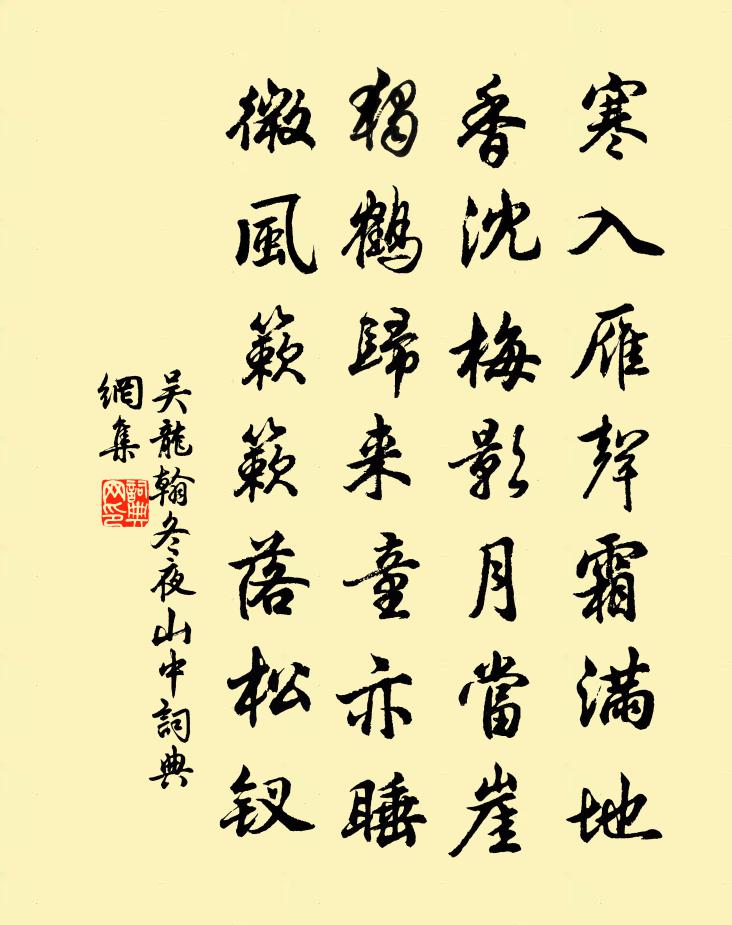 寒入雁聲霜满地
香沈梅影月當崖
獨鶴歸来童亦睡
微風簌簌落松钗
吴龍翰冬夜山中詞典
網集
詞典
网印